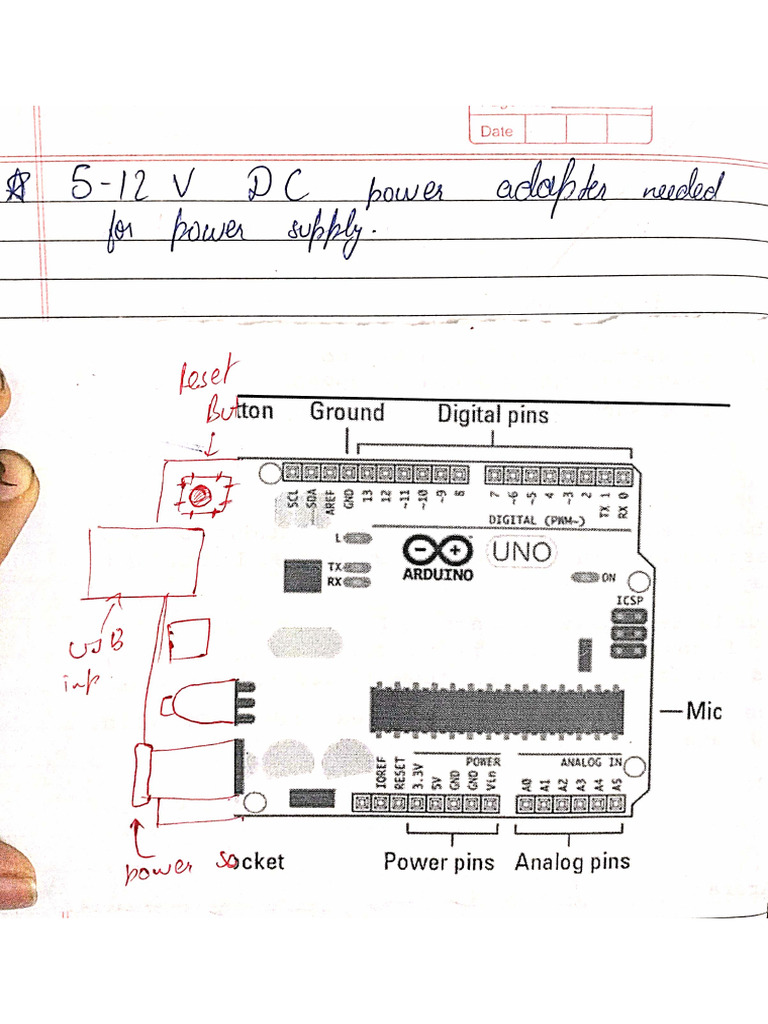 Date
☆ 5-12 V DC power adapter needed
for power supply.
Reset
Button Ground Digital pins
SCL SDA AREF GND 13 12 ~11 ~10 ~9 8 7 ~6 ~5 4 ~3 2 TX 1 RX 0
DIGITAL (PWM~)
L
TX
RX
ARDUINO
UNO
ON
ICSP
USB
inp.
Mic
POWER
ANALOG IN
IOREF RESET 3.3V 5V GND GND Vin A0 A1 A2 A3 A4 A5
power socket Power pins Analog pins